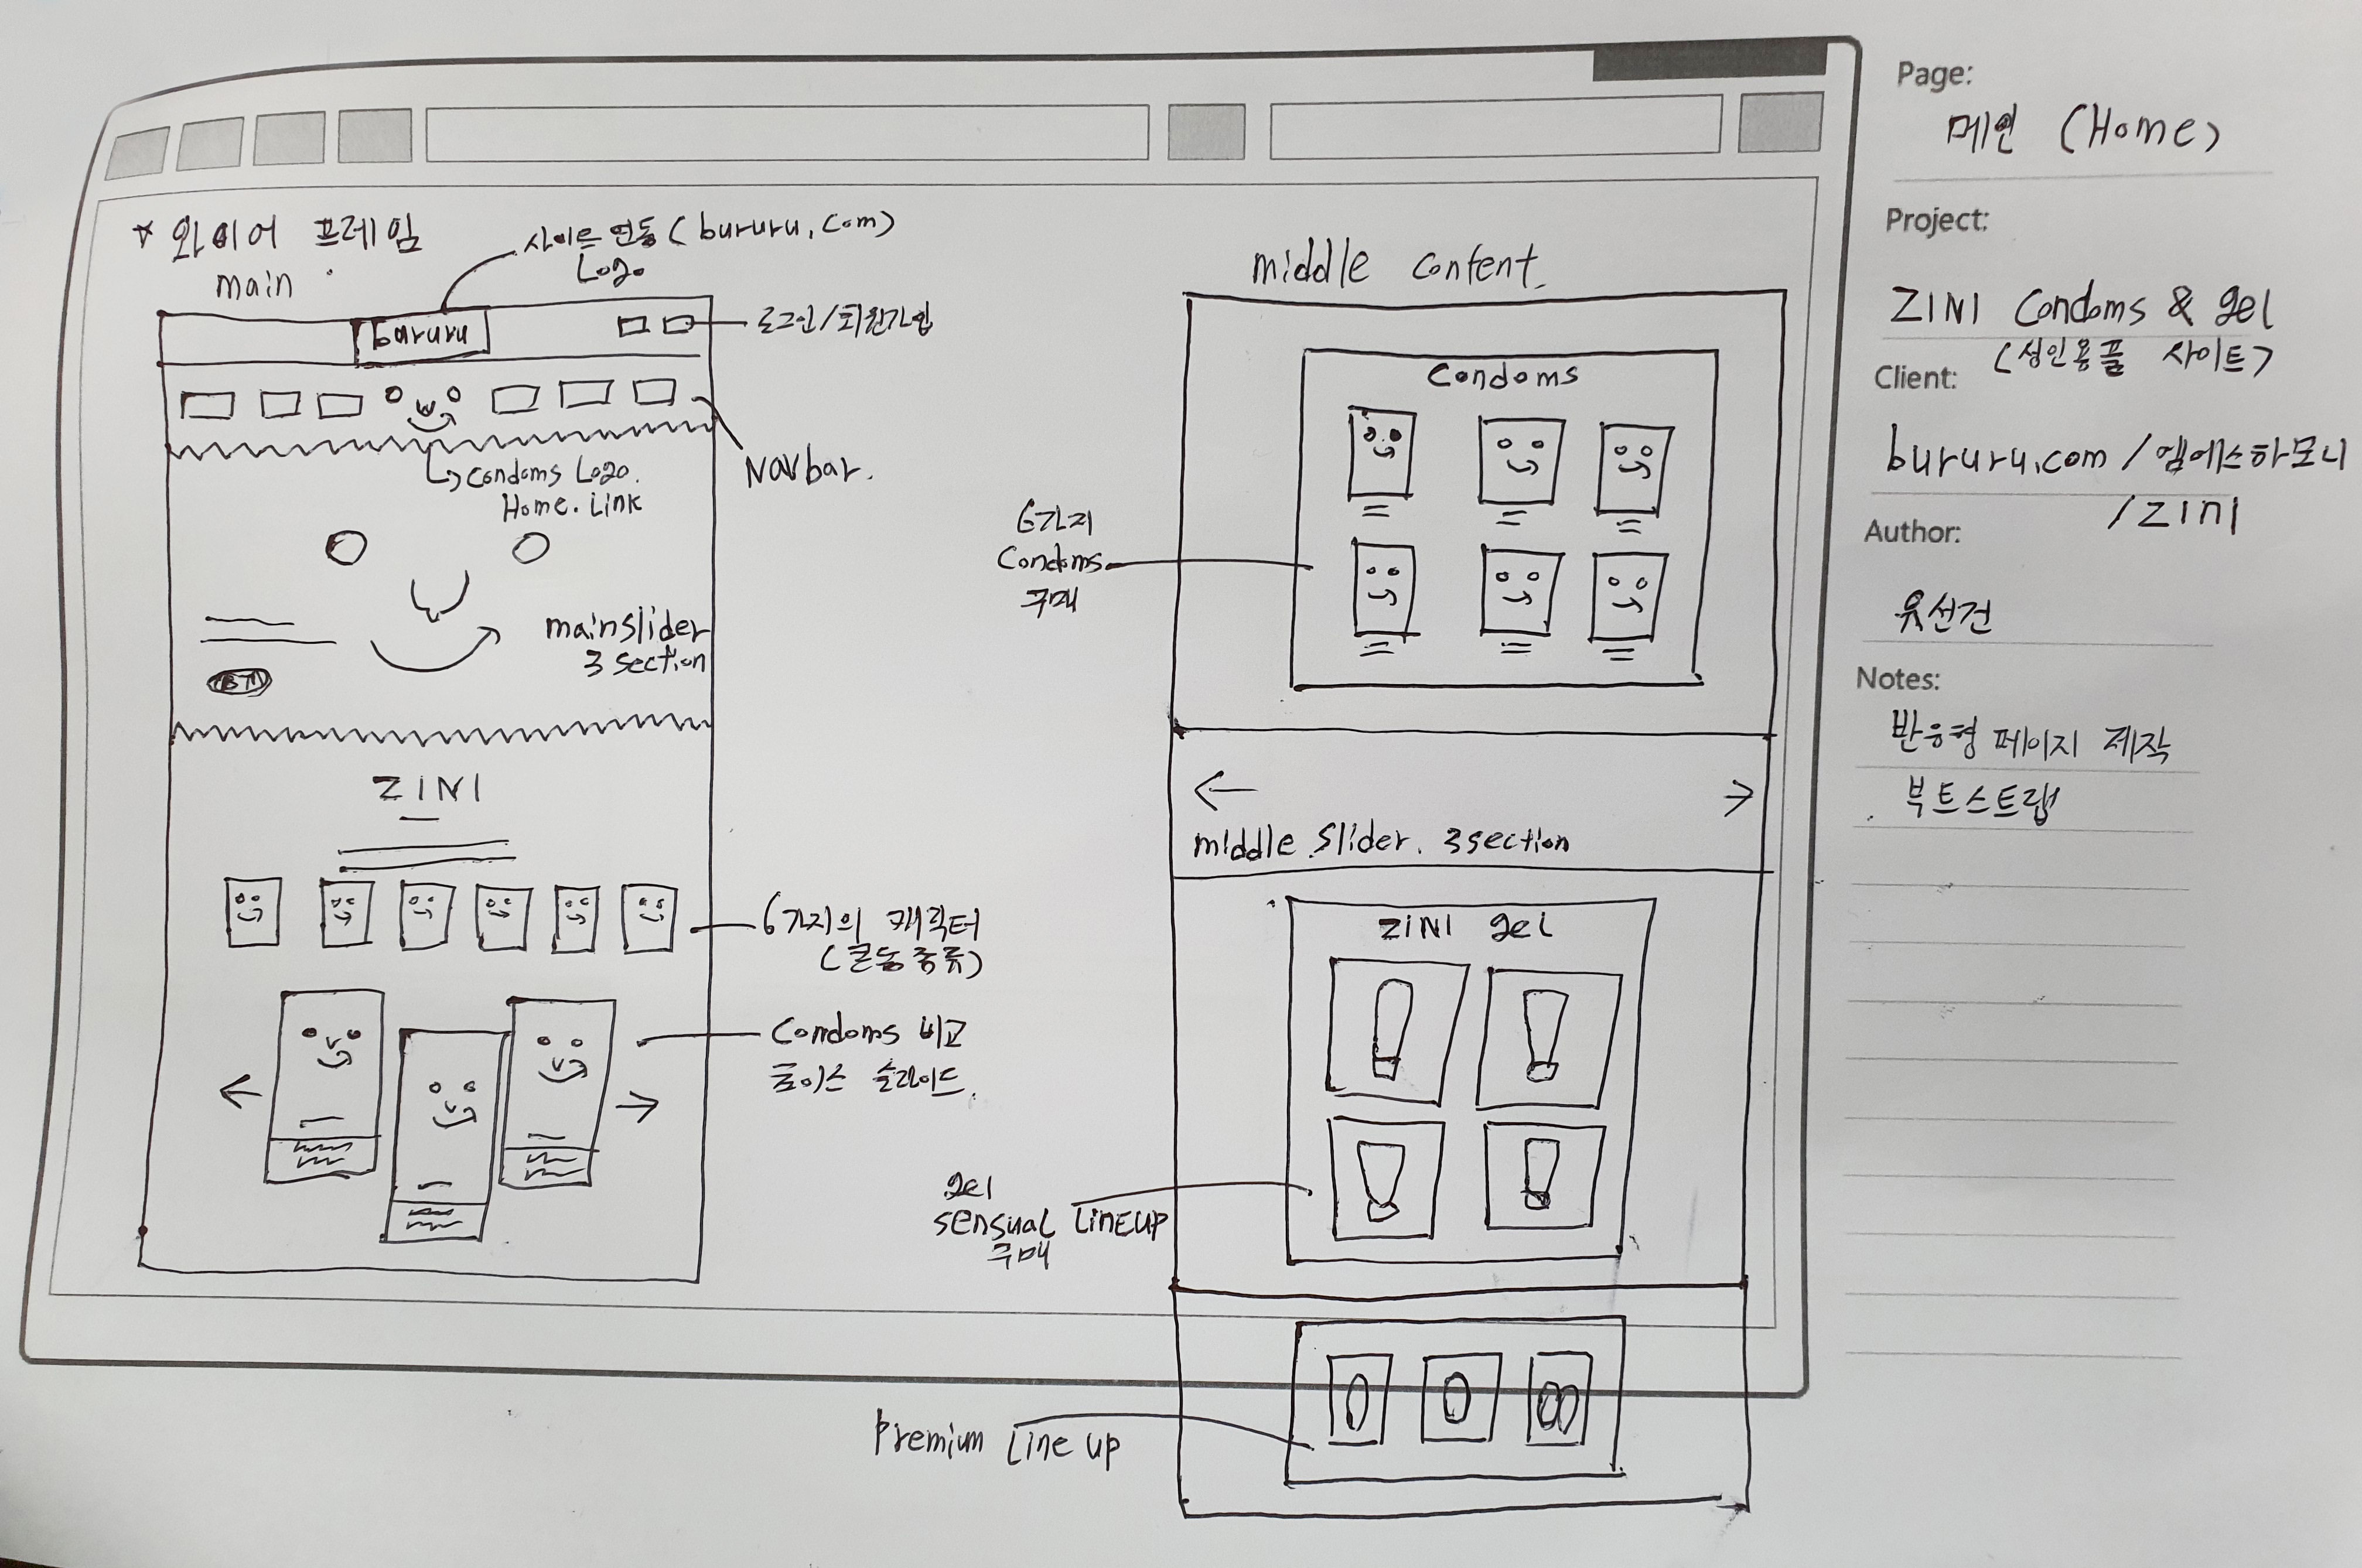 * 와이어 프레임
main
사이트 연동 (bururu.com)
Logo
bururu
로그인/회원가입
Navbar.
Condoms Logo.
Home. Link
mainslider
3 section
BTN
ZINI
6가지의 캐릭터
(콘돔종류)
Condoms 비교
초이스 슬라이드.
middle content.
Condoms
6가지
Condoms
구매
middle slider. 3section
ZINI gel
gel
sensual LineUP
구매
Premium Line up
Page:
메인 (Home)
Project:
ZINI Condoms & gel
(성인용품 사이트)
Client:
bururu.com / 엠에스하모니
/ZINI
Author:
유선건
Notes:
반응형 페이지 제작
부트스트랩